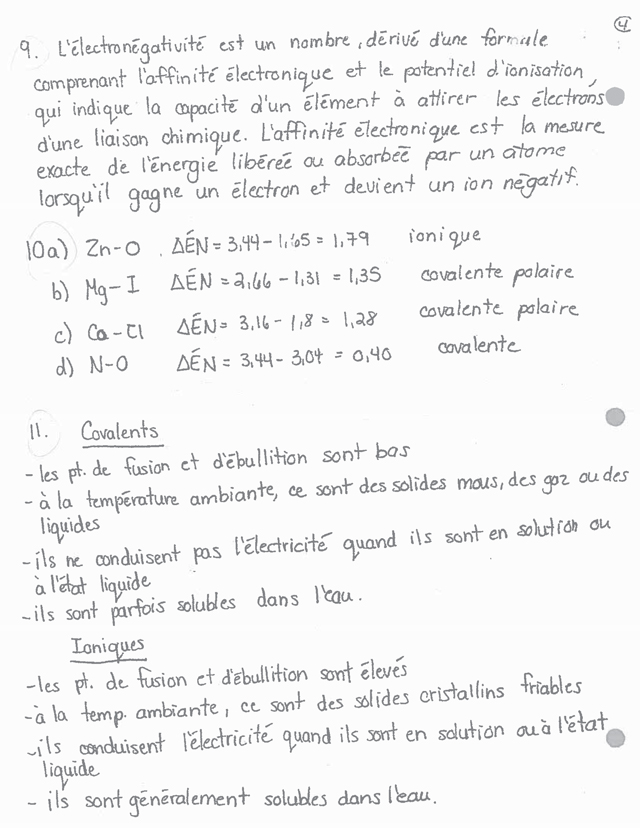 ④
9. L'électronégativité est un nombre, dérivé d'une formule
comprenant l'affinité électronique et le potentiel d'ionisation,
qui indique la capacité d'un élément à attirer les électrons
d'une liaison chimique. L'affinité électronique est la mesure
exacte de l'énergie libérée ou absorbée par un atome
lorsqu'il gagne un électron et devient un ion négatif.
10a) Zn-O . ΔÉN = 3,44 - 1,65 = 1,79 ionique
b) Mg-I ΔÉN = 2,66 - 1,31 = 1,35 covalente polaire
c) Co-Cl ΔÉN = 3,16 - 1,8 = 1,28 covalente polaire
d) N-O ΔÉN = 3,44 - 3,04 = 0,40 covalente
11. Covalents
- les pt. de fusion et d'ébullition sont bas
- à la température ambiante, ce sont des solides mous, des gaz ou des
liquides
- ils ne conduisent pas l'électricité quand ils sont en solution ou
à l'état liquide
- ils sont parfois solubles dans l'eau.
Ioniques
- les pt. de fusion et d'ébullition sont élevés
- à la temp. ambiante, ce sont des solides cristallins friables
- ils conduisent l'électricité quand ils sont en solution ou à l'état
liquide
- ils sont généralement solubles dans l'eau.